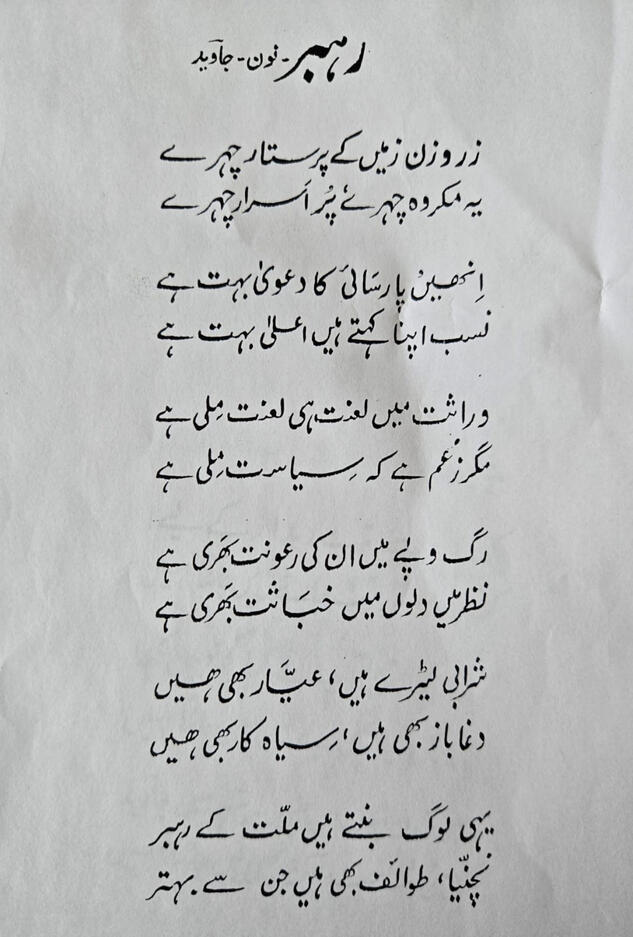 رہبر - نون - جاوید
زر و زن زمیں کے پرستار چہرے
یہ مکروہ چہرے پُر اَسرار چہرے
اِنھیں پارسَائی کا دعویٰ بہت ہے
نسب اپنا کہتے ہیں اعلیٰ بہت ہے
وراثت میں لعنت ہی لعنت مِلی ہے
مگر زُعم ہے کہ سِیاست مِلی ہے
رگ و پے میں ان کی رعونت بھَری ہے
نظر میں دلوں میں خبَاثت بھَری ہے
شرابی لیٹرے ہیں، عیَّار بھی ھیں
دغا باز بھی ہیں، سِیاہ کار بھی ھیں
یہی لوگ بنتے ہیں ملّت کے رہبر
نچنیّا، طوائف بھی ہیں جن سے بہتر